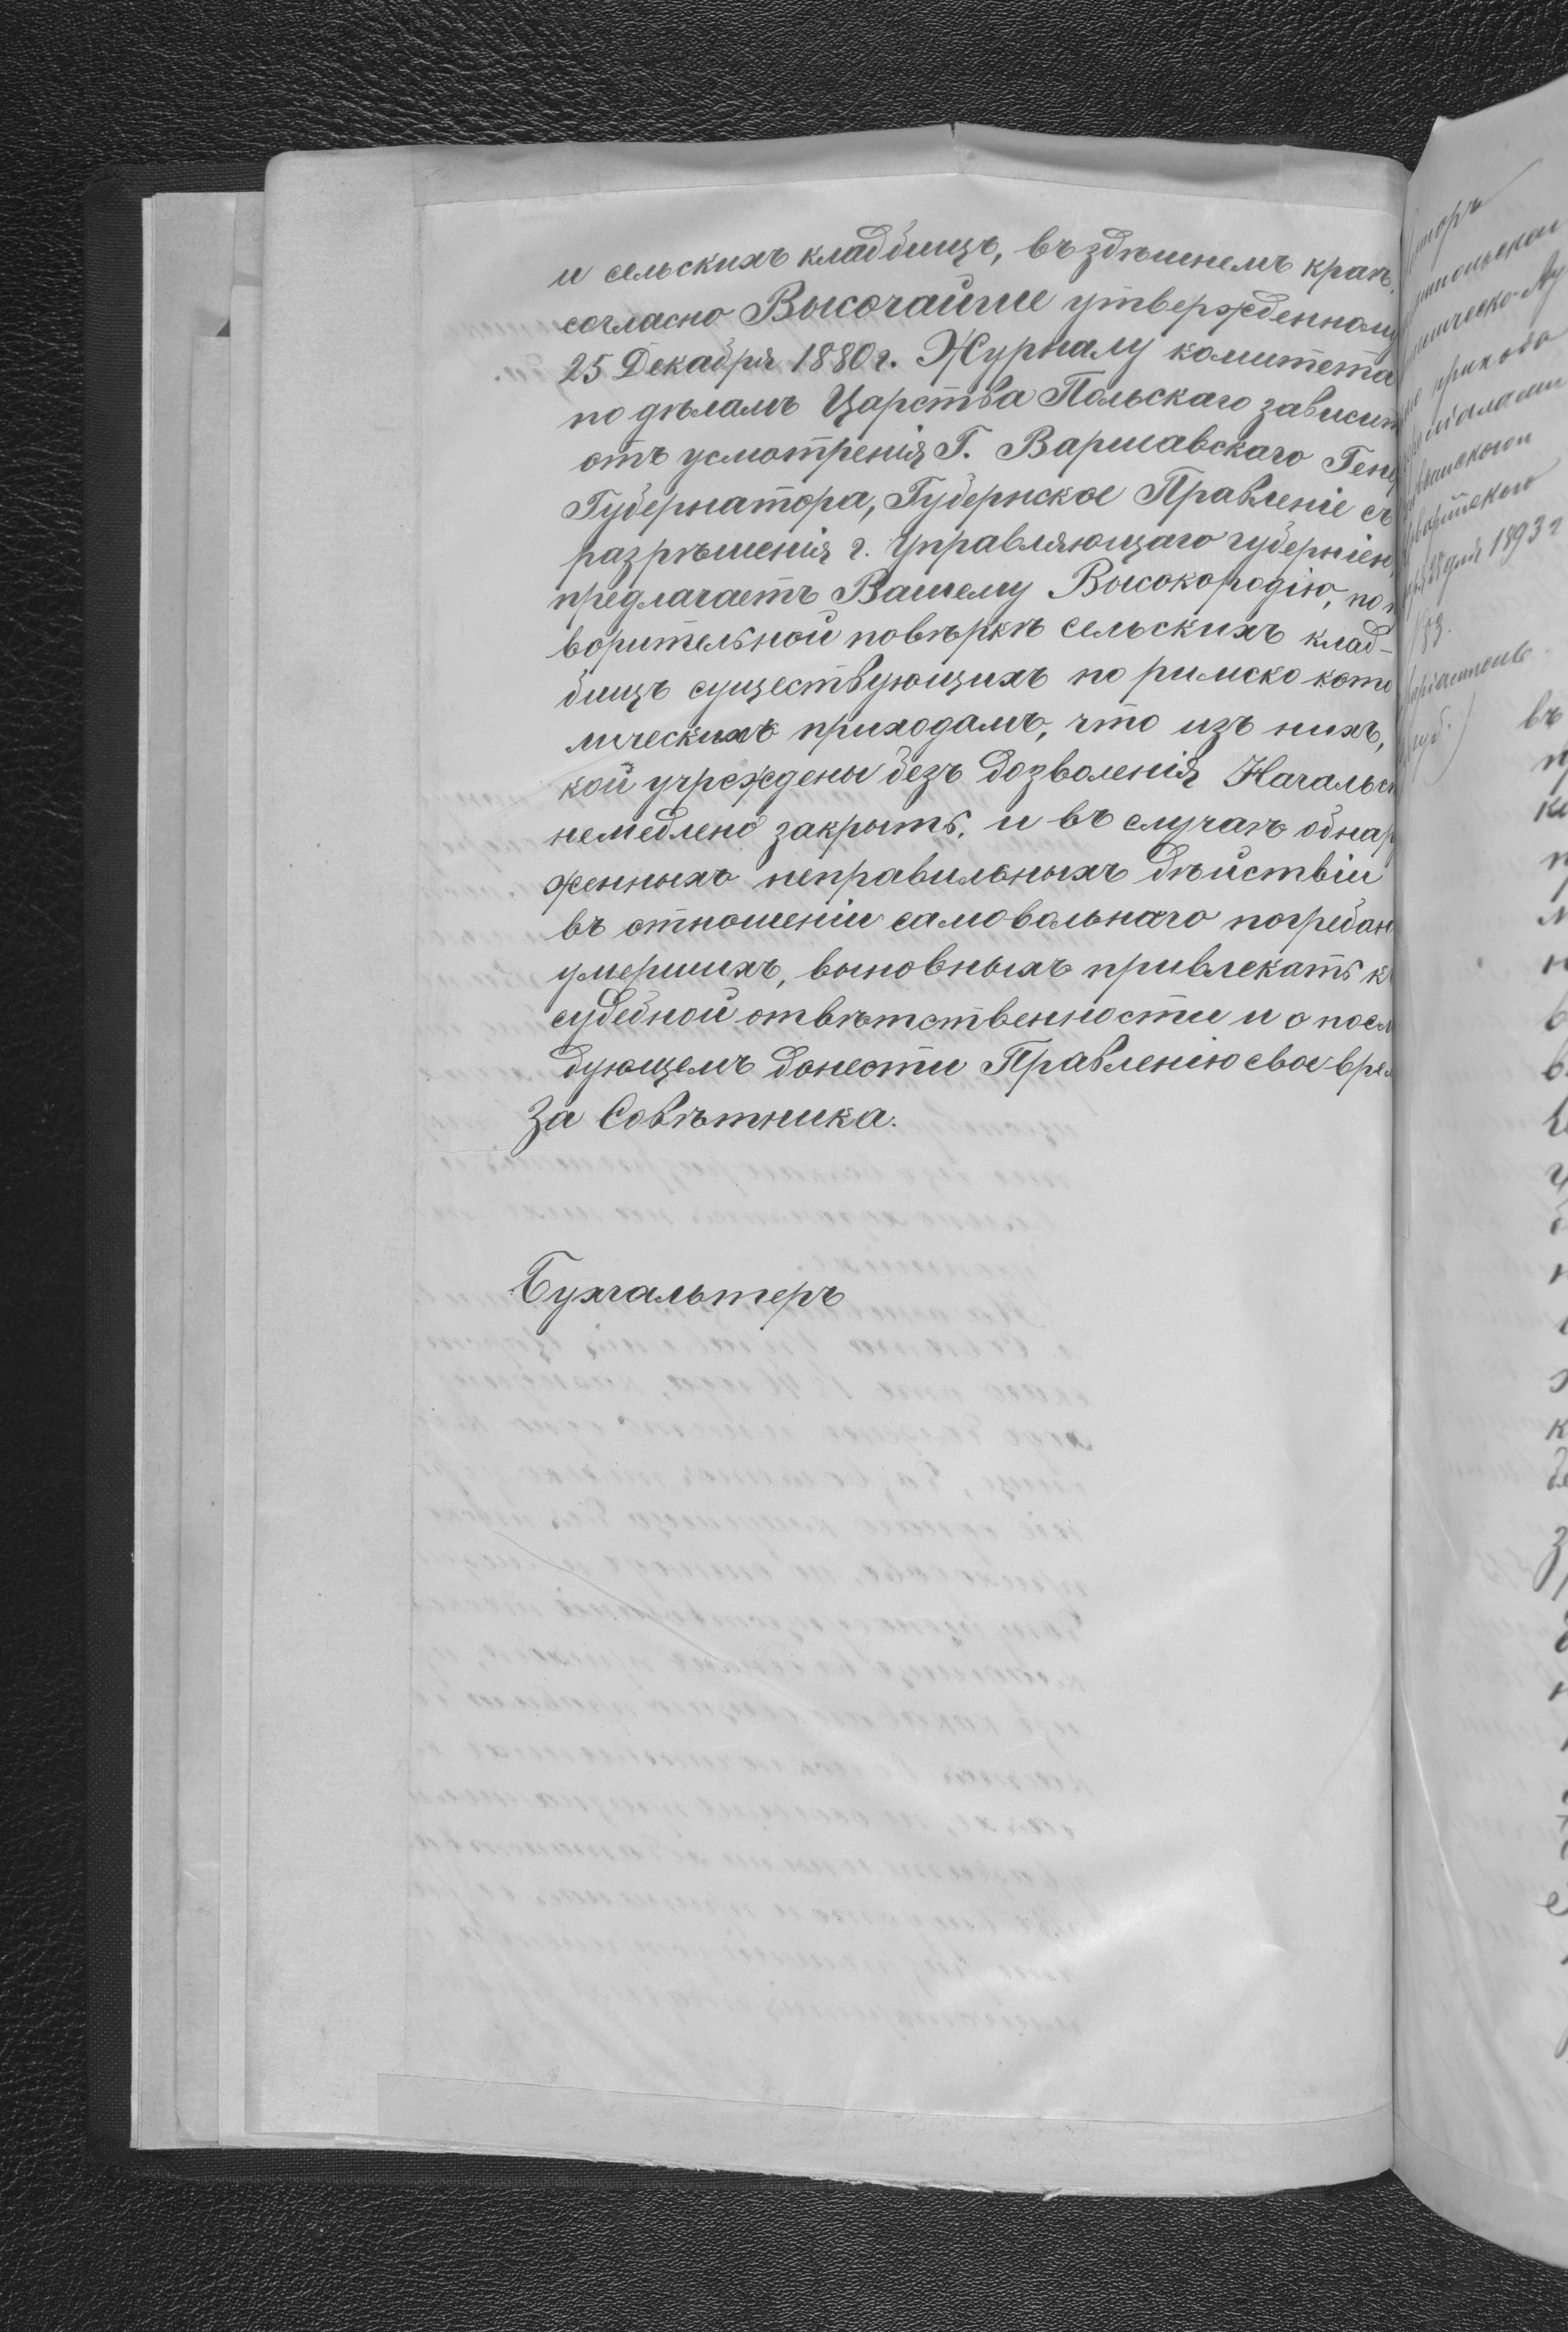 и сельскихъ кладбищъ, въ здѣшнемъ краѣ,
согласно Высочайше утвержденному
25 Декабря 1880 г. Журналу комитета
по дѣламъ Царства Польскаго зависит
отъ усмотренія Г. Варшавскаго Гене
Губернатора, Губернское Правленіе съ
разрѣшенія г. Управляющаго губерніею,
предлагаетъ Вашему Высокородію, по
ворительной повѣркѣ сельскихъ клад-
бищъ существующихъ по римско като
лическихъ приходамъ, что изъ нихъ,
кой учреждены безъ дозволенія Начальст
немедлено закрыть, и въ случаѣ обнар
женныхъ неправильныхъ дѣйствіи
въ отношеніи самовольнаго погребан
умершихъ, выновныхъ привлекать к
судебной отвѣтственности и о посл
дующемъ донести Правленію свое врем
За Совѣтника.
Бухгальтеръ
прихода
1893 г
183.
въ